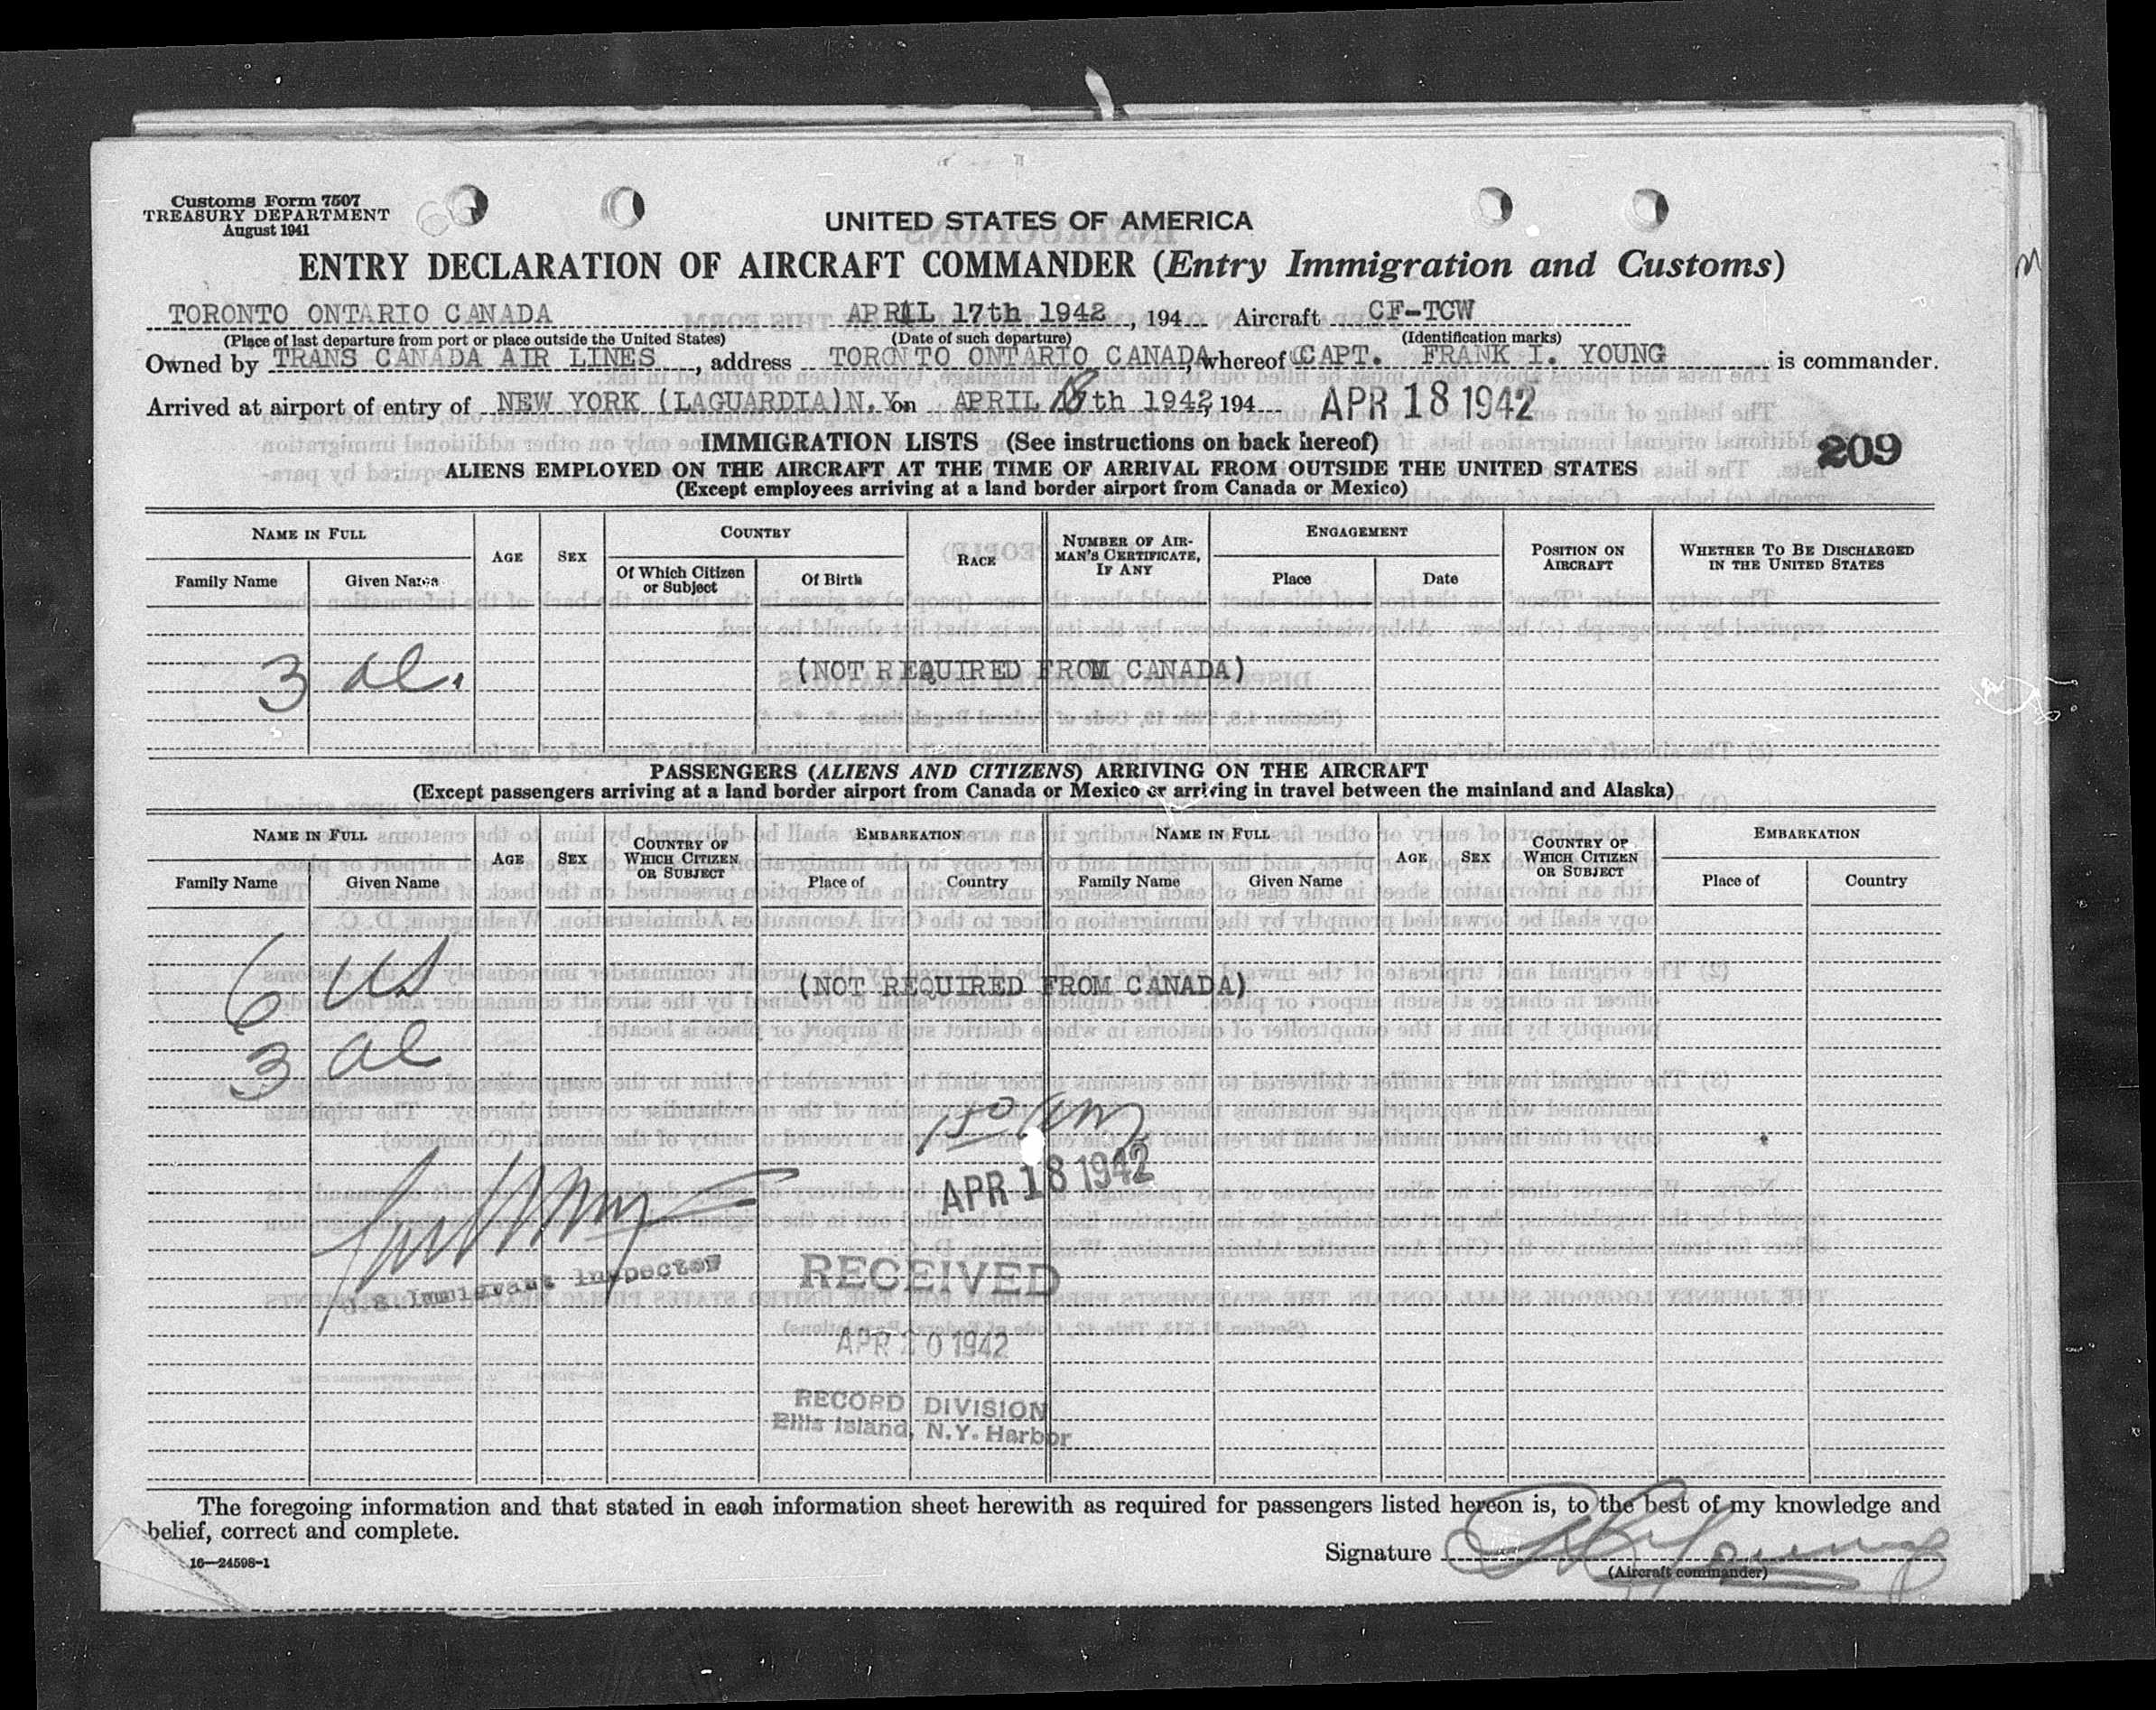 Customs Form 7507
TREASURY DEPARTMENT
August 1941
UNITED STATES OF AMERICA
ENTRY DECLARATION OF AIRCRAFT COMMANDER (Entry Immigration and Customs)
TORONTO ONTARIO CANADA APRIL 17th 1942, 194 Aircraft CF-TCW
(Place of last departure from port or place outside the United States) (Date of such departure) (Identification marks)
Owned by TRANS CANADA AIR LINES, address TORONTO ONTARIO CANADA, whereof CAPT. FRANK I. YOUNG is commander.
Arrived at airport of entry of NEW YORK (LAGUARDIA) N.Y. on APRIL 18th 1942, 194 APR 18 1942
IMMIGRATION LISTS (See instructions on back hereof)
209
ALIENS EMPLOYED ON THE AIRCRAFT AT THE TIME OF ARRIVAL FROM OUTSIDE THE UNITED STATES
(Except employees arriving at a land border airport from Canada or Mexico)
NAME IN FULL AGE SEX COUNTRY RACE NUMBER OF AIRMAN'S CERTIFICATE, IF ANY ENGAGEMENT POSITION ON AIRCRAFT WHETHER TO BE DISCHARGED IN THE UNITED STATES
Family Name Given Name Of Which Citizen or Subject Of Birth Place Date
3 al. (NOT REQUIRED FROM CANADA)
PASSENGERS (ALIENS AND CITIZENS) ARRIVING ON THE AIRCRAFT
(Except passengers arriving at a land border airport from Canada or Mexico or arriving in travel between the mainland and Alaska)
NAME IN FULL AGE SEX COUNTRY OF WHICH CITIZEN OR SUBJECT EMBARKATION NAME IN FULL AGE SEX COUNTRY OF WHICH CITIZEN OR SUBJECT EMBARKATION
Family Name Given Name Place of Country Family Name Given Name Place of Country
6 US (NOT REQUIRED FROM CANADA)
3 al
APR 18 1942
U.S. Immigrant Inspector
RECEIVED
APR 20 1942
RECORD DIVISION
Ellis Island, N.Y. Harbor
The foregoing information and that stated in each information sheet herewith as required for passengers listed hereon is, to the best of my knowledge and
belief, correct and complete.
Signature
(Aircraft commander)
16—24598-1